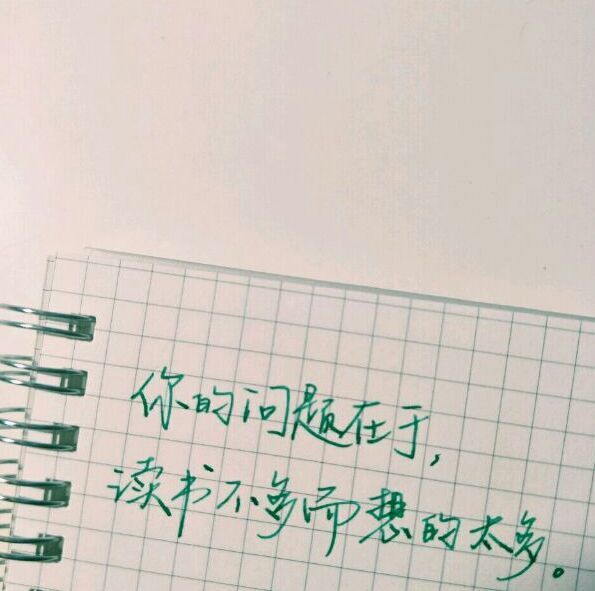 你的问题在于,
读书不多而想的太多。